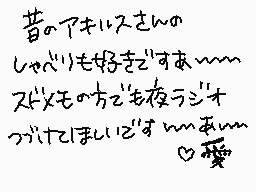 昔のアキルスさんの
しゃべりも好きですあ〜〜
スドメモの方でも夜ラジオ
つづけてほしいです〜〜あ〜〜
♡愛